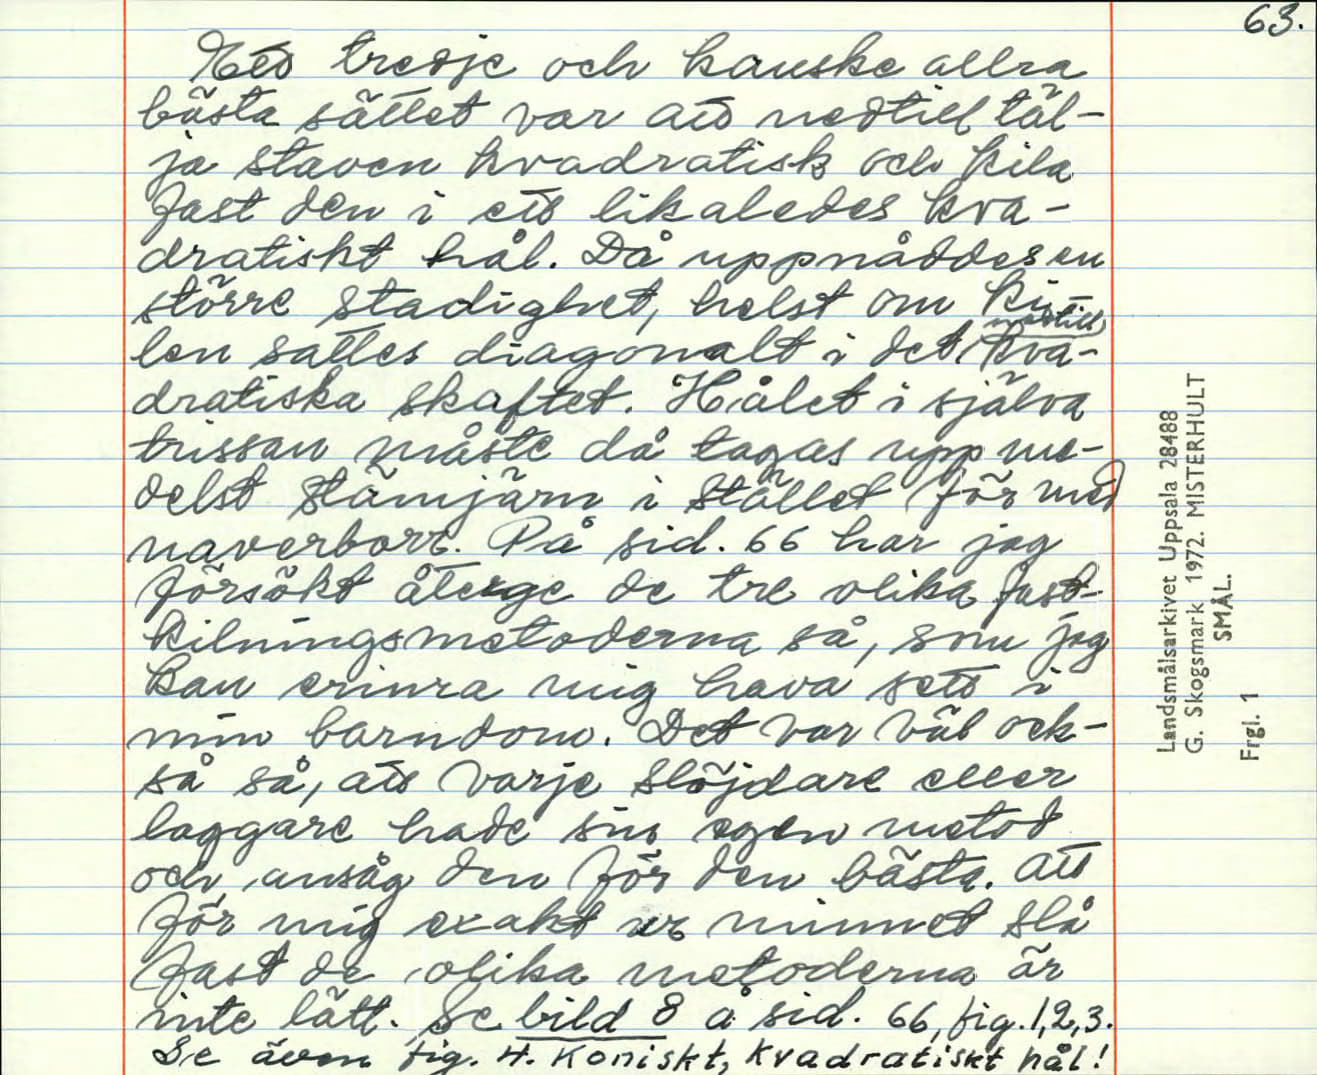 63.
Ett tredje och kanske allra
bästa sättet var att nedtill täl-
ja staven kvadratisk och kila
fast den i ett likaledes kva-
dratiskt hål. Då uppnåddes en
större stadighet, helst om ki-
nedtill
len sattes diagonalt i det kva-
dratiska skaftet. Hålet i själva
trissan måste då tagas upp me-
delst stämjärn i stället för med
naverborr. På sid. 66 har jag
försökt återge de tre olika fast-
kilningsmetoderna så, som jag
kan erinra mig hava sett i
min barndom. Det var väl ock-
så så, att varje slöjdare eller
laggare hade sin egen metod
och ansåg den för den bästa. Att
för mig exakt ur minnet slå
fast de olika metoderna är
inte lätt. Se bild 8 å sid. 66, fig. 1, 2, 3.
Se även fig. 4. Koniskt, kvadratiskt hål!
Landsmålsarkivet Uppsala 28488
G. Skogsmark 1972. MISTERHULT
SMÅL.
Frgl. 1